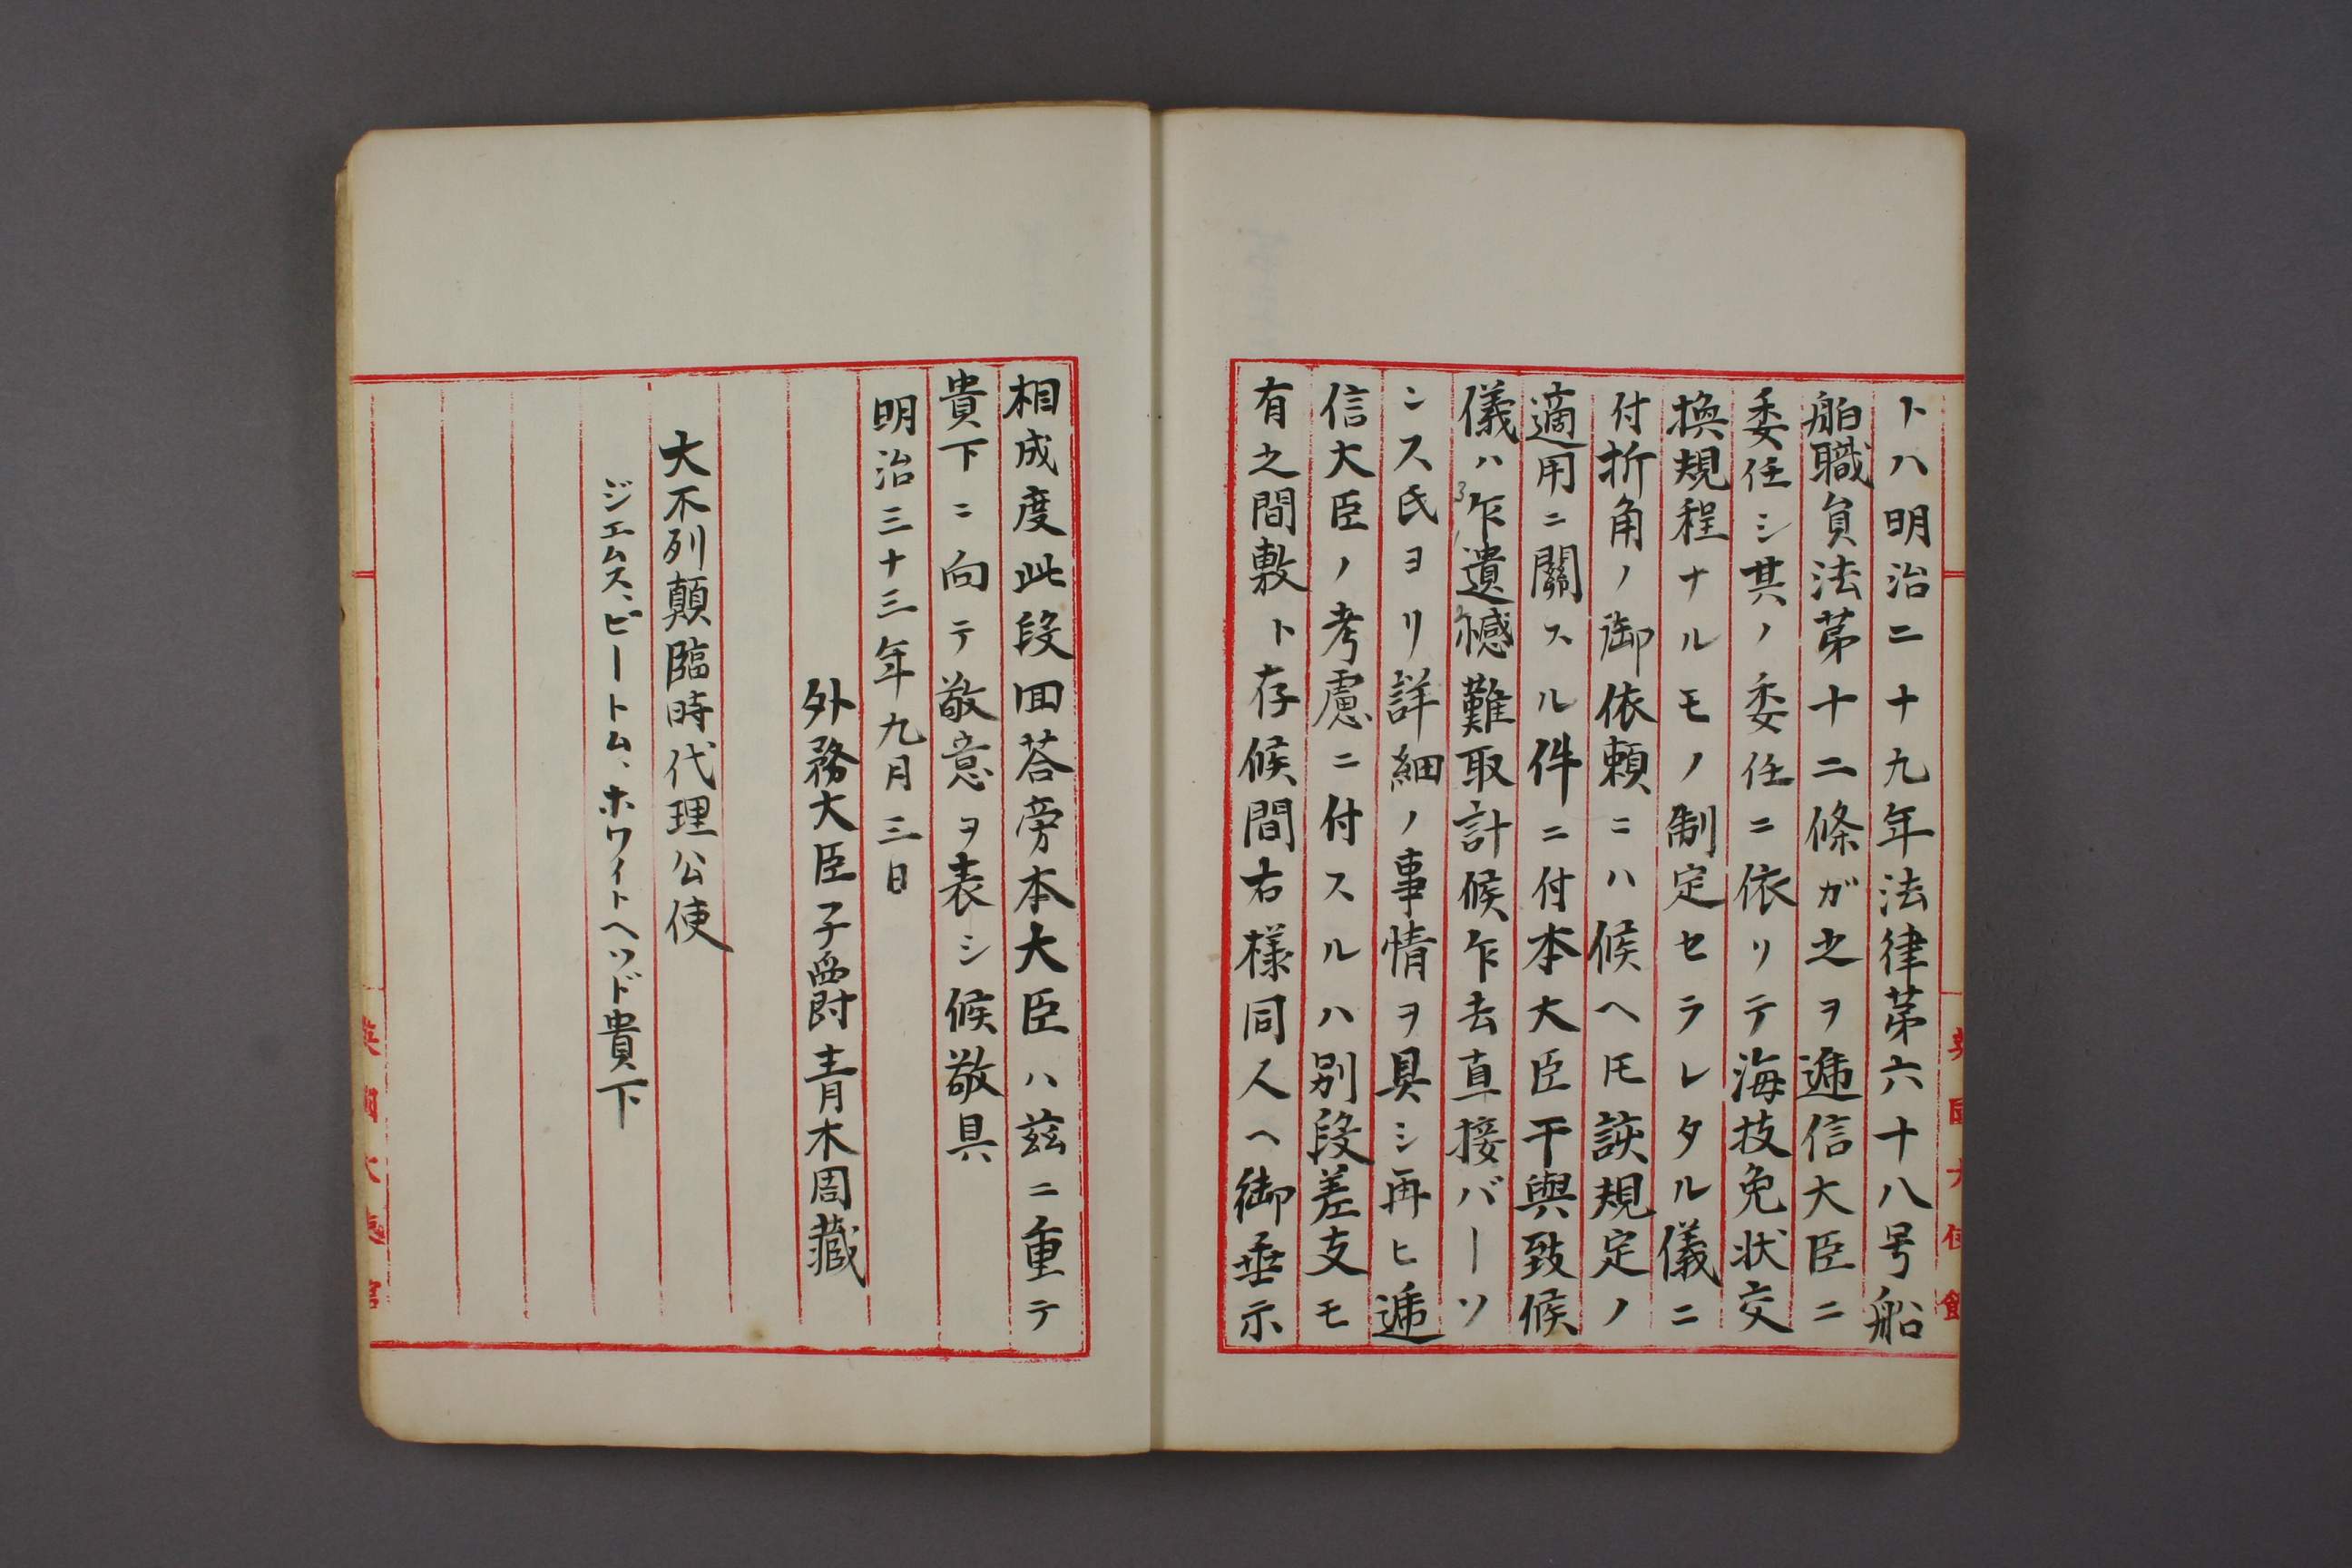 トハ明治二十九年法律第六十八号船
舶職員法第十二條ガ之ヲ逓信大臣ニ
委任シ其ノ委任ニ依リテ海技免状交
換規程ナルモノ制定セラレタル儀ニ
付折角ノ御依頼ニハ候ヘ𪜈該規定ノ
適用ニ關スル件ニ付本大臣干與致候
儀ハ乍遺憾難取計候乍去直接バーソ
ンス氏ヨリ詳細ノ事情ヲ具シ再ヒ逓
信大臣ノ考慮ニ付スルハ別段差支モ
有之間敷ト存候間右様同人ヘ御垂示
相成度此段回答旁本大臣ハ茲ニ重テ
貴下ニ向テ敬意ヲ表シ候敬具
明治三十三年九月三日
外務大臣子爵青木周蔵
大不列顛臨時代理公使
ジエムス、ビートム、ホワイトヘツド貴下
英國大使館
英國大使館